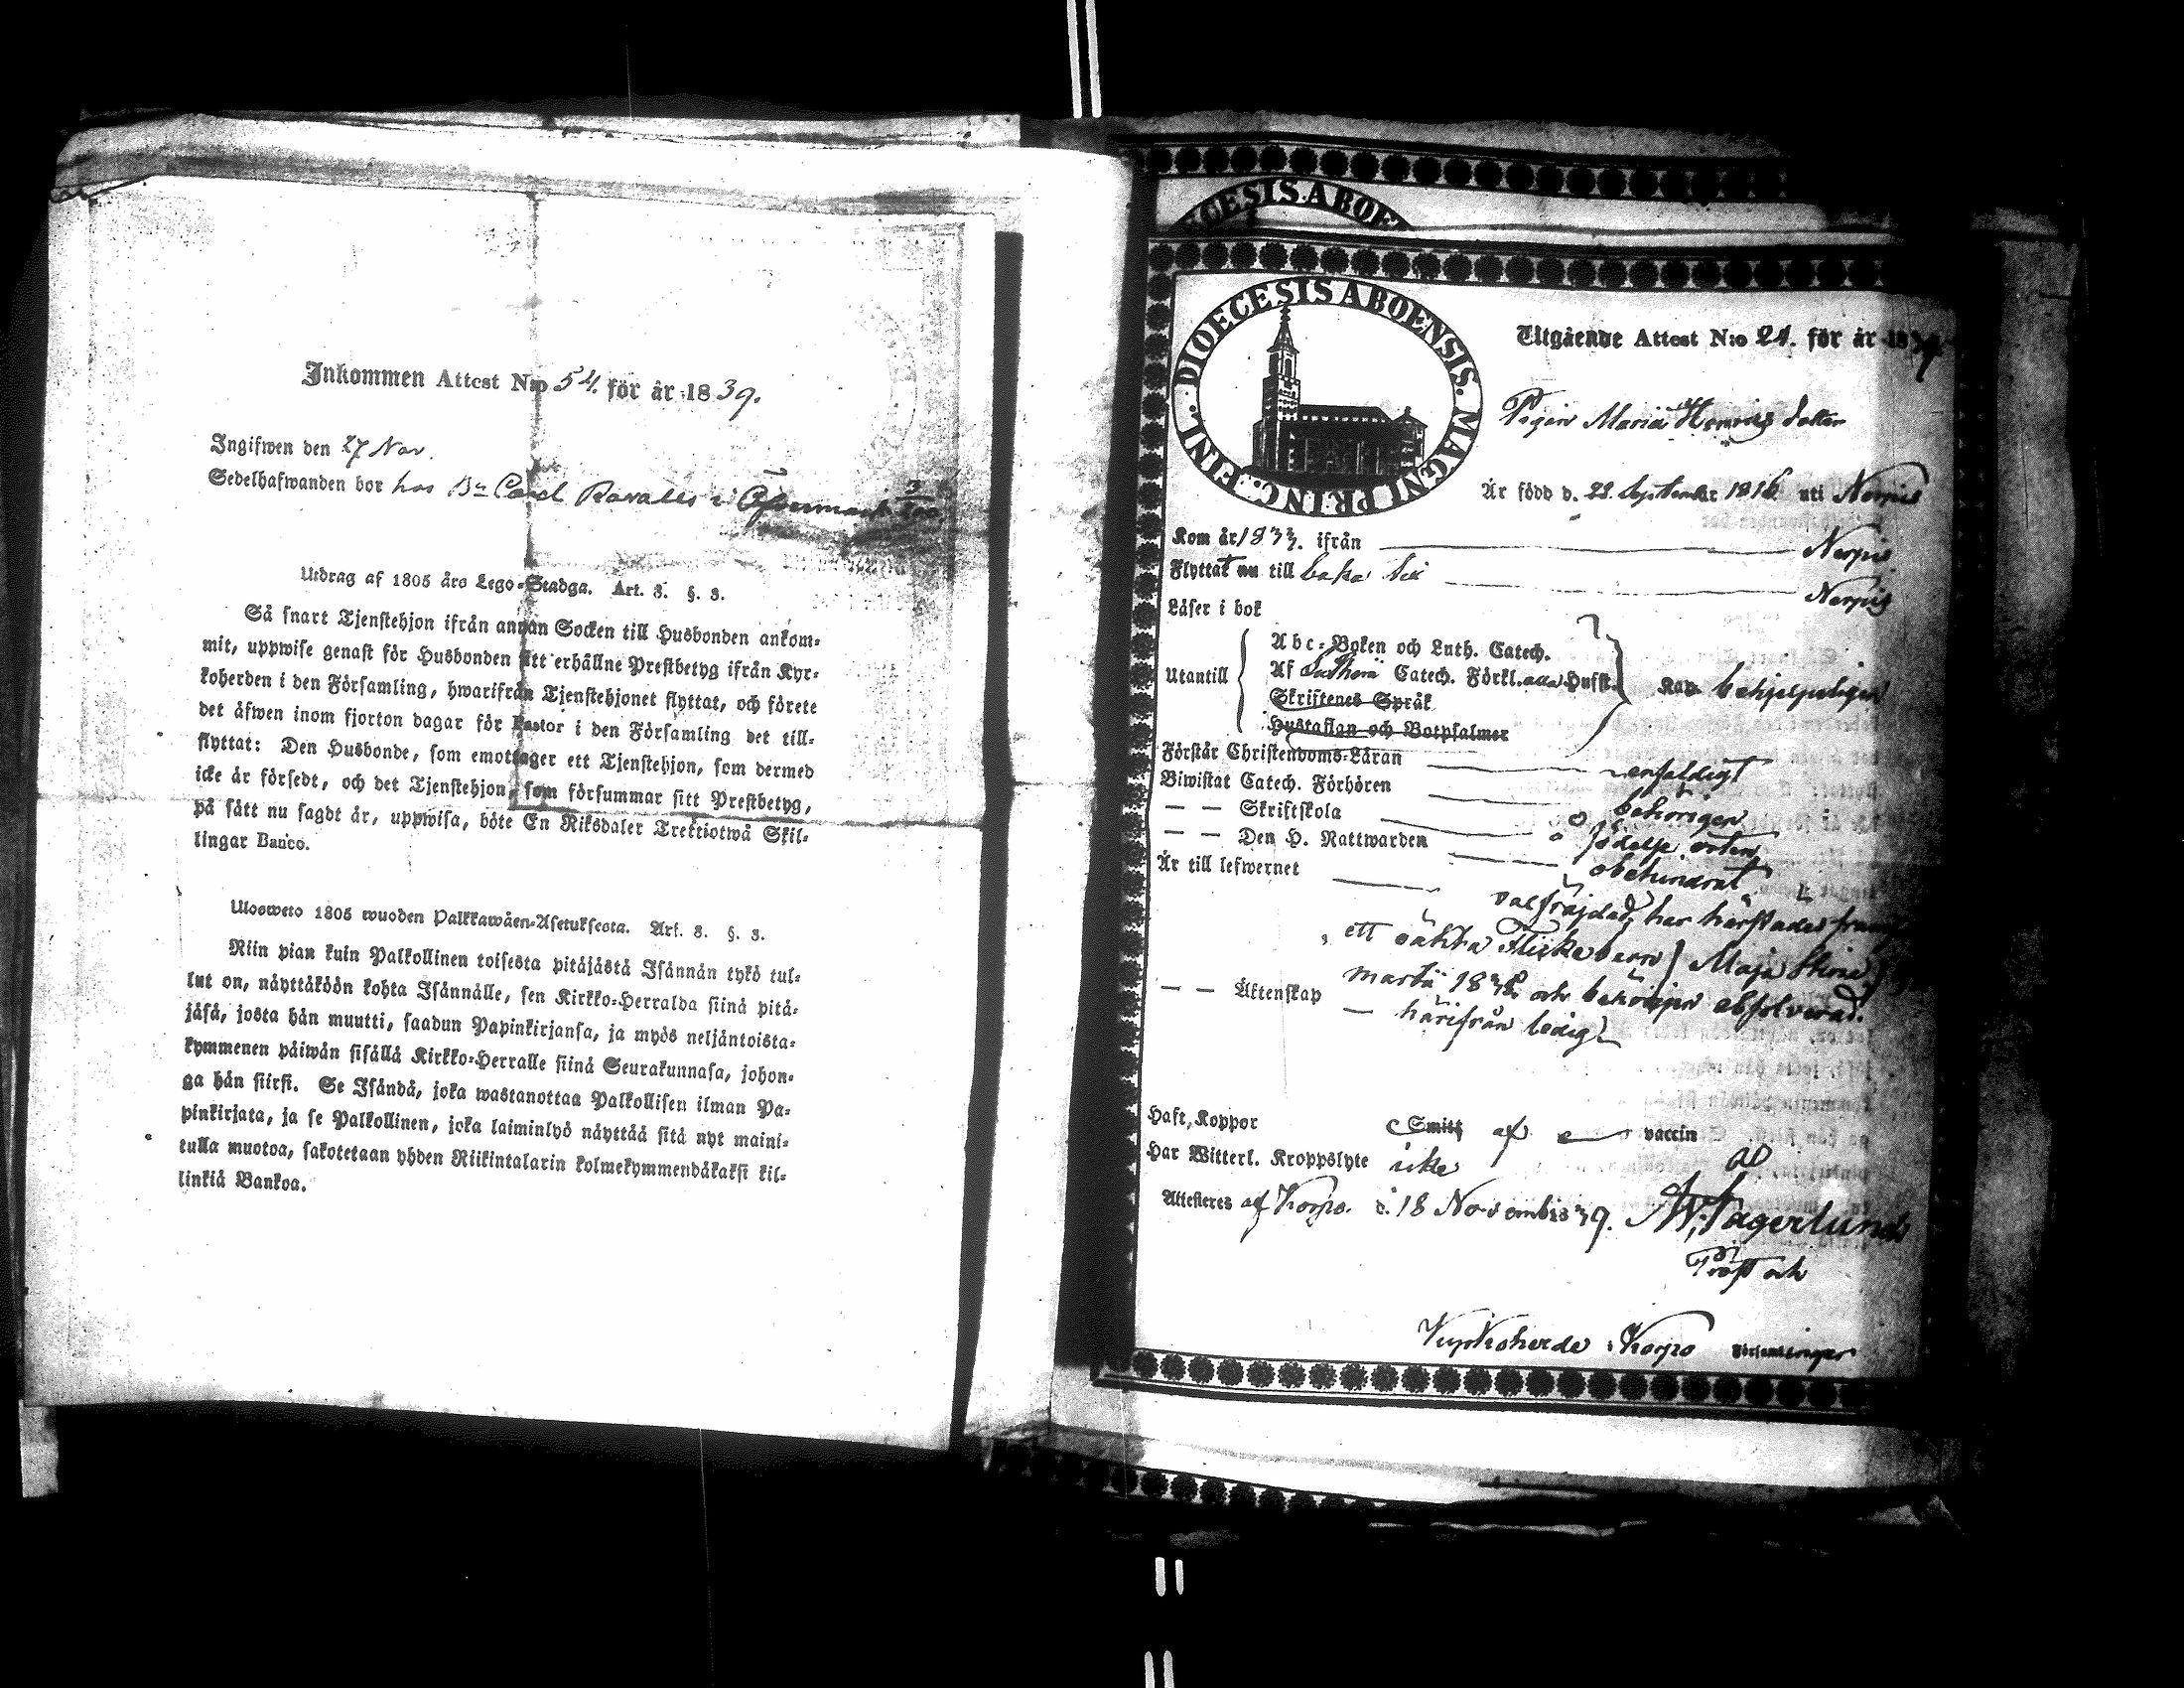 Inkommen Attest N:o 54. för år 1839.
Ingifwen den 27 Nov.
Sedelhafwanden bor hos Bn Carl i Öfvermark
Utdrag af 1805 års Lego-Stadga. Art. 3. §. 3.
Så snart Tjenstehjon ifrån annan Socken till Husbonden ankom-
mit, uppwise genast för Husbonden sitt erhållne Prestbetyg ifrån Kyr-
koherden i den Församling, hwarifrån Tjenstehjonet flyttat, och förete
det äfwen inom fjorton dagar för Pastor i den Församling det till-
flyttat: Den Husbonde, som emottager ett Tjenstehjon, som dermed
icke är försedt, och det Tjenstehjon, som försummar sitt Prestbetyg,
på sätt nu sagdt är, uppwisa, böte En Riksdaler Trettiotwå Skil-
lingar Banco.
Ulosweto 1805 wuoden Palkkawäen-Asetuksesta. Art. 3. §. 3.
Niin pian kuin Palkollinen toisesta pitäjästä Isännän tykö tul-
lut on, näyttäköön kohta Isännälle, sen Kirkko-Herralda siinä pitä-
jäsä, josta hän muutti, saadun Papinkirjansa, ja myös neljäntoista-
kymmenen päiwän sisällä Kirkko-Herralle siinä Seurakunnasa, johon-
ga hän siirsi. Se Isändä, joka wastanottaa Palkollisen ilman Pa-
pinkirjata, ja se Palkollinen, joka laiminlyö näyttää sitä nyt maini-
tulla muotoa, sakotetaan yhden Riikintalarin kolmekymmendäkaksi kil-
linkiä Bankoa.
DIOECESIS ABOEN
DIOECESIS ABOENSIS. MAGNI PRINC. FINL.
Utgående Attest N:o 21. för år 1839
Pigan Maria Henricsdotter
Är född d. 22 September 1816 uti Nerpis
Kom år 1833. ifrån Nerpis
Flyttat nu till baka till Nerpis
Läser i bok
Utantill
Abc-Boken och Luth. Catech.
Af Catech. Förkl. Husst.
Skriftenes Språk
Hustaflan och Botpsalmer
behjelpeligen
Förstår Christendoms-Läran enfaldigt
Biwistat Catech. Förhören behörigen
— — Skriftskola i födelse orten
— — Den H. Nattwarden obehindrat
Är till lefwernet välfräjdad, har härstädes
ett oäkta Flickebarn Maja Stina
martii 1838 och behörigen absolverad.
— — Äktenskap — härifrån ledig
Haft, Koppor Smitt af vaccin
Har Witterl. Kroppslyte icke
Attesteres af Korpo d. 18 November 39.
Prost och
Kyrkoherde i Korpo Församlingar